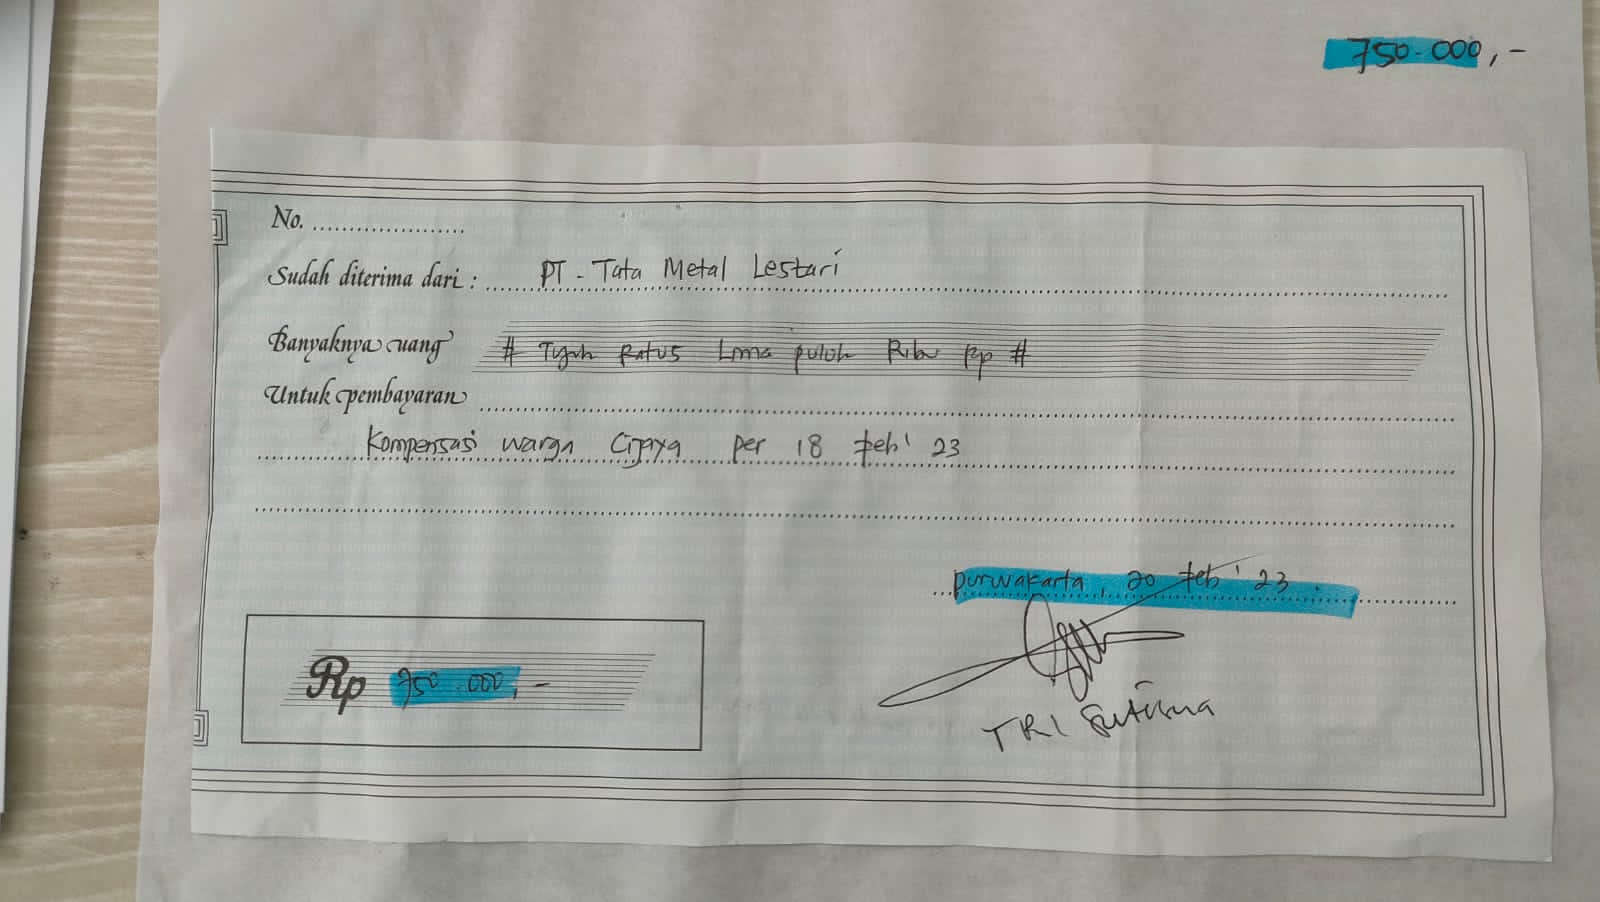 750.000,-
No. ....................
Sudah diterima dari : PT - Tata Metal Lestari
Banyaknya uang # Tujuh Ratus Lima puluh Ribu Rp #
Untuk pembayaran
Kompensasi warga Cijaya per 18 Feb' 23
Purwakarta, 20 Feb' 23.
Rp 750.000,-
TRI Sutisna